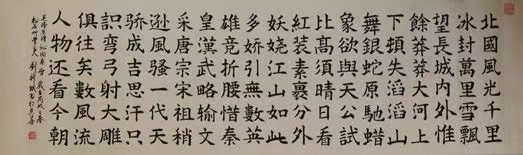 北國風光千里
冰封萬里雪飄
望長城內外惟
餘莽莽大河上
下頓失滔滔山
舞銀蛇原馳蠟
象欲與天公試
比高須晴日看
妖嬈江山如此
多嬌引無數英
雄競折腰惜秦
皇漢武略輸文
采唐宗宋祖稍
遜風騷一代天
驕成吉思汗只
識彎弓射大雕
俱往矣數風流
人物還看今朝
毛澤東詩沁園春雪